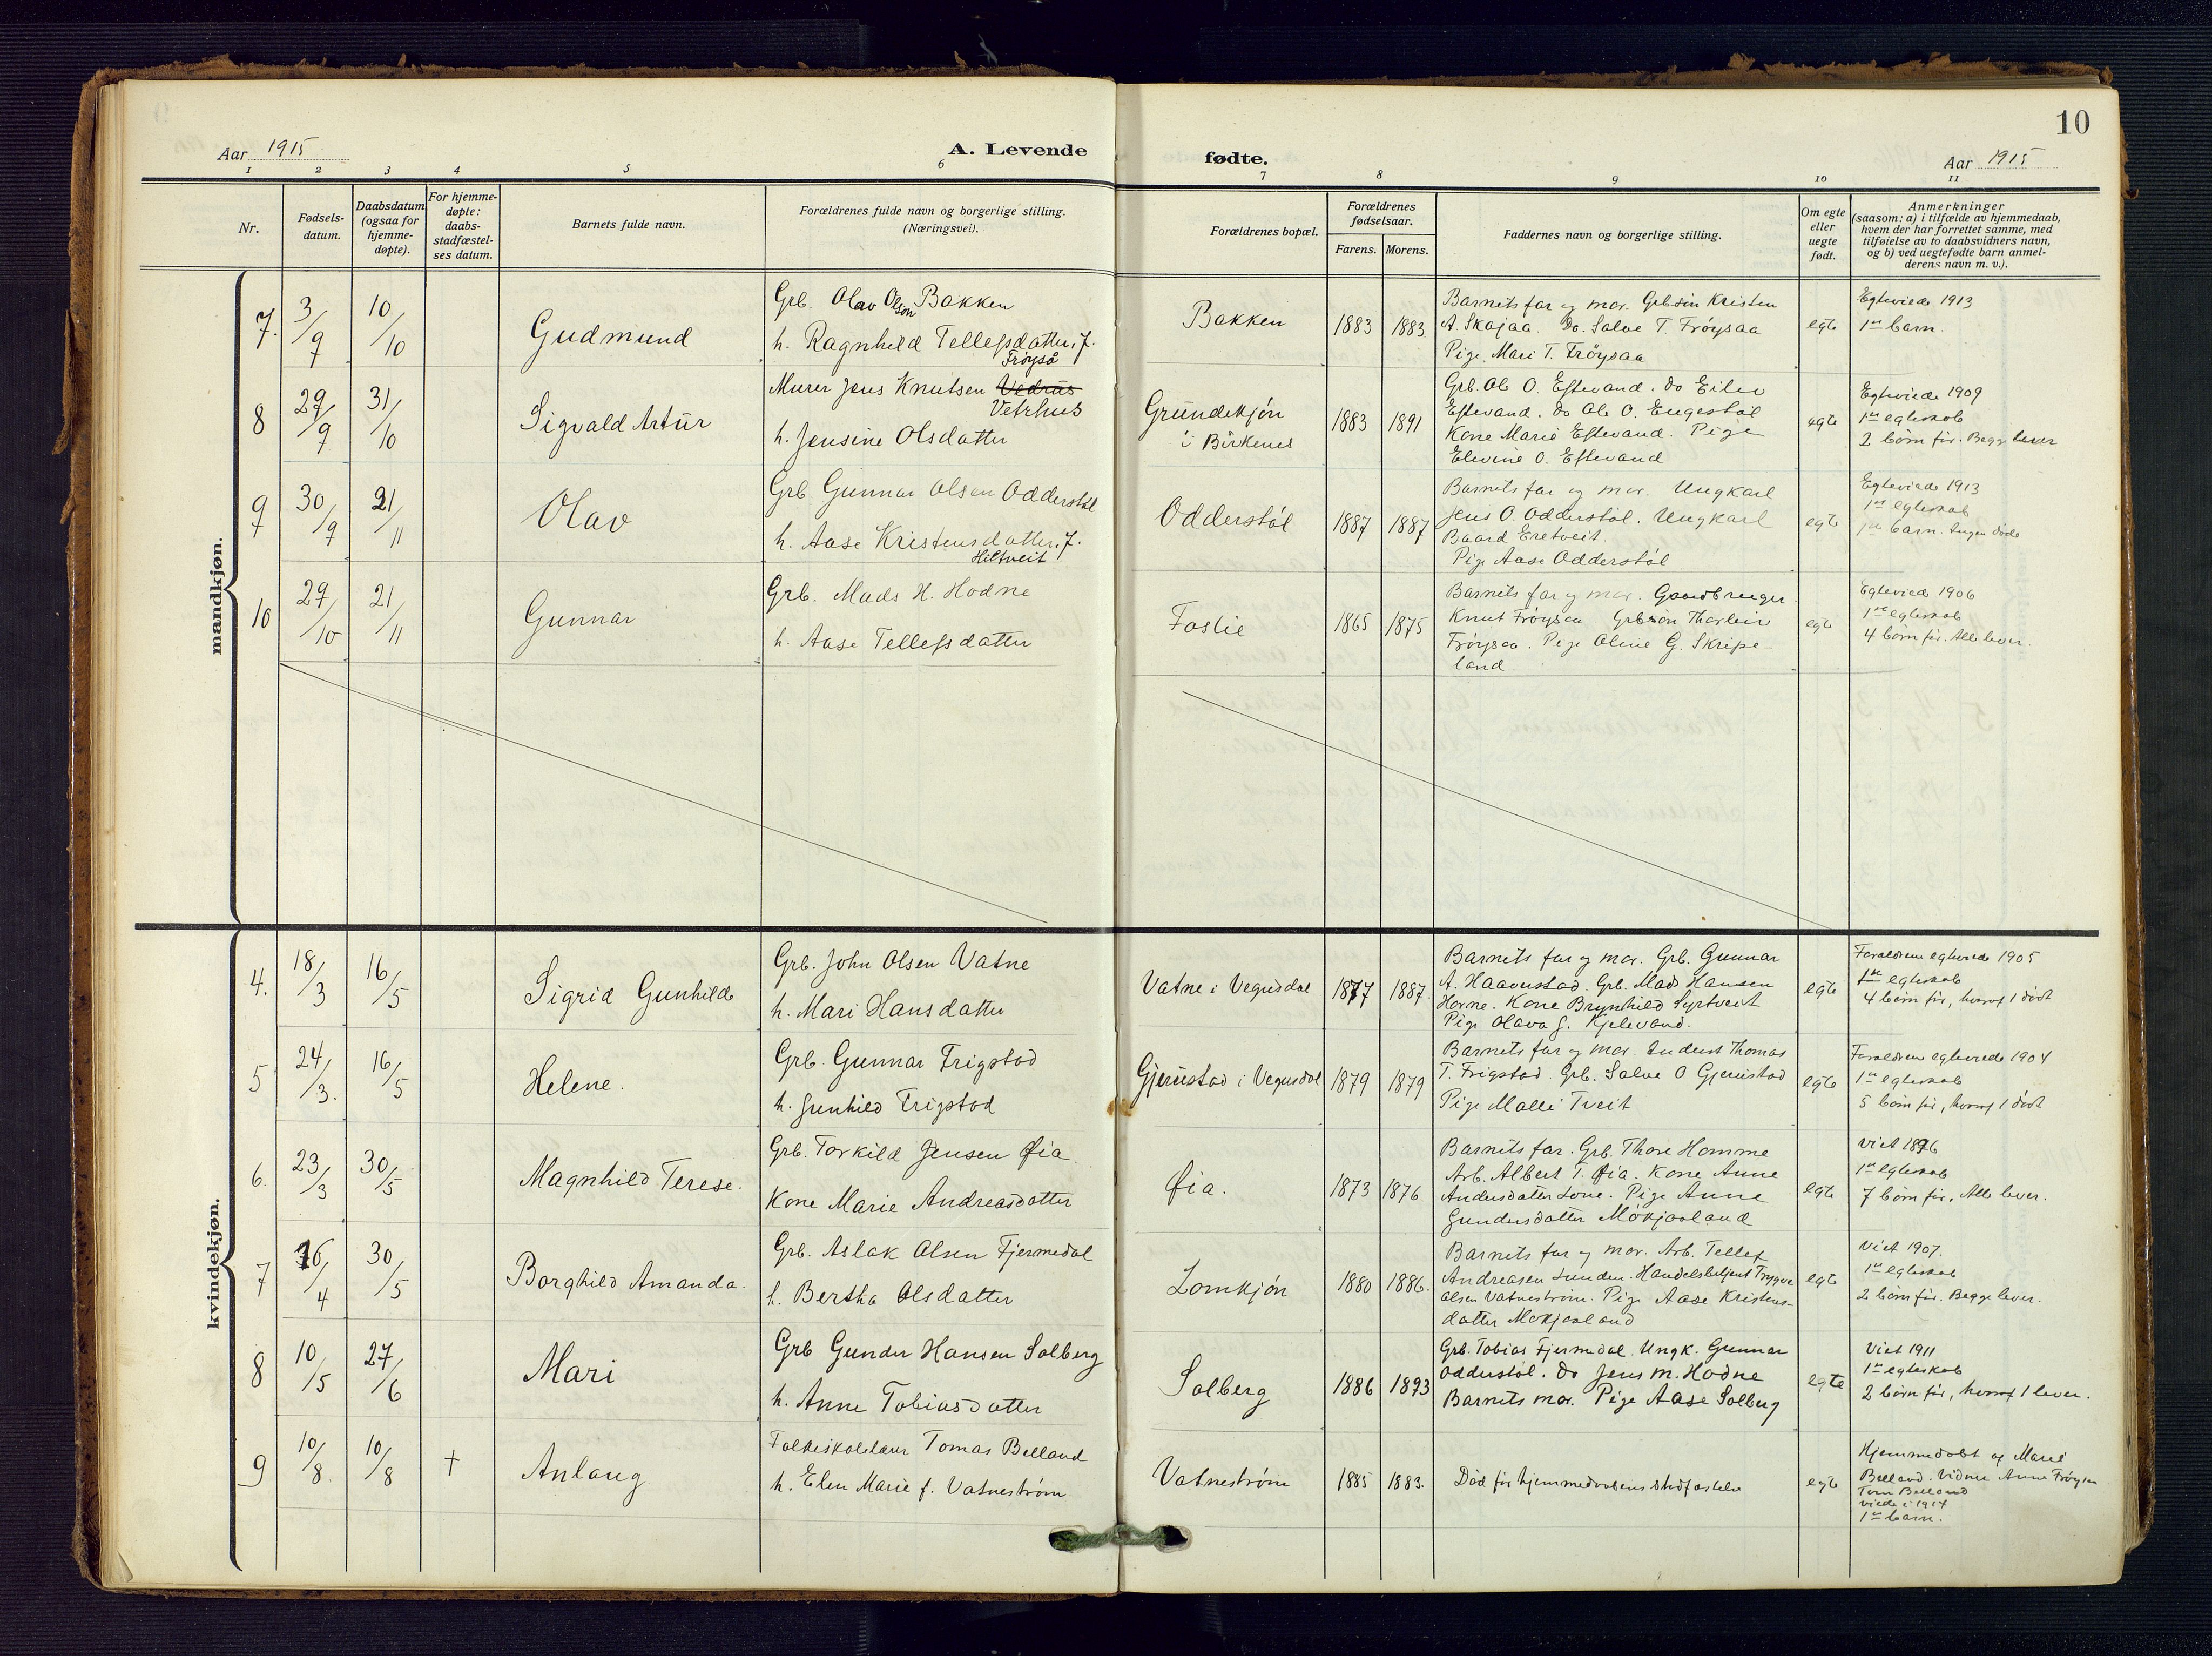 10
Aar 1915
A. Levende
fødte.
Aar 1915
1 2 3 4 5 6 7 8 9 10 11
Nr.
Fødsels-
datum.
Daabsdatum
(ogsaa for
hjemme-
døpte).
For hjemme-
døpte:
daabs-
stadfæstel-
ses datum.
Barnets fulde navn.
Forældrenes fulde navn og borgerlige stilling.
(Næringsvei).
Forældrenes bopæl.
Forældrenes
fødselsaar.
Farens. Morens.
Faddernes navn og borgerlige stilling.
Om egte
eller
uegte
født.
Anmerkninger
(saasom: a) i tilfælde av hjemmedaab,
hvem der har forrettet samme, med
tilføielse av to daabsvidners navn,
og b) ved uegtefødte barn anmel-
derens navn m. v.).
mandkjøn.
7. 3/9 10/10 Gudmund
Grb. Olav Olson Bakken
h. Ragnhild Tellefsdatter, f.
Frøyså
Bakken 1883 1883.
Barnets far og mor. Grbsøn Kristen
A. Skajaa. Do. Salve T. Frøysaa
Pige Mari T. Frøysaa
egte
Egteviede 1913
1ste barn.
8 29/9 31/10 Sigvald Artur
Murer Jens Knutsen Vedrus
Vetrhus
h. Jensine Olsdatter
Grundekjøn
i Birkenes
1883 1891
Grb. Ole O. Eftevand. do Eilev
Eftevand. do Ole O. Engestøl
Kone Marie Eftevand. Pige
Elevine O. Eftevand
egte
Egteviede 1909
1ste egteskab
2 børn før. Begge lever
9 30/9 21/11 Olav
Grb. Gunnar Olsen Odderstøl
h. Aase Kristensdatter, f.
Hiltveit
Odderstøl 1887 1887
Barnets far og mor. Ungkarl
Jens O. Odderstøl. Ungkarl
Baard Eretveit.
Pige Aase Odderstøl
egte
Egteviede 1913
1ste egteskab
1ste barn. Ingen døde
10 29/10 21/11 Gunnar
Grb. Mads H. Hodne
h. Aase Tellefsdatter
Foslie 1865 1875
Barnets far og mor. Gaardbruger
Knut Frøysaa Grbsøn Thorleiv
Frøysaa. Pige Oline G. Skripe-
land
egte
Egteviede 1906
1ste egteskab
4 børn før. Alle lever.
kvindekjøn.
4. 18/3 16/5 Sigrid Gunhilde
Grb. John Olsen Vatne
h. Mari Hansdatter
Vatne i Vegusdal 1877 1887.
Barnets far og mor. Grb. Gunnar
A. Haavestad. Grb. Mads Hansen
Horne. Kone Brynhild Syrtveit
Pige Olava G. Kjelevand.
egte
Forældrene egteviede 1905
1ste egteskab
4 børn før, hvoraf 1 dødt
5 24/3. 16/5 Helene.
Grb. Gunnar Frigstad
h. Gunhild Frigstad
Gjerustad i Vegusdal 1879 1879
Barnets far og mor. Inderst Thomas
T. Frigstad. Grb. Salve O Gjerustad
Pige Malli Tveit
egte
Forældrene egteviede 1904
1ste egteskab
5 børn før, hvoraf 1 dødt
6. 23/3 30/5 Magnhild Terese.
Grb. Torkild Jensen Øia
Kone Marie Andreasdatter
Øia. 1873 1876
Barnets far. Grb. Thore Homme
Arb. Albert T. Øia. Kone Anne
Andersdatter Lone. Pige Anne
Gundersdatter Møkjaaland
egte
Viet 1896
1ste egteskab
7 børn før, Alle lever.
7 16/4 30/5 Borghild Amanda.
Grb. Aslak Olsen Fjermedal
h. Bertha Olsdatter
Lomkjøn 1880 1886.
Barnets far og mor. Arb. Tellef
Andreasen Lunden. Handelsbetjent Trygve
Olsen Vatnestrøm. Pige Aase Kristens-
datter Mokjaaland
egte
Viet 1907.
1ste egteskab
2 børn før. Begge lever.
8 10/5 27/6 Mari
Grb Gunder Hansen Solberg
h. Anne Tobiasdatter
Solberg 1886 1893
Grb. Tobias Fjermedal. Ungk. Gunnar
Odderstøl. Do Jens M. Hodne
Barnets mor. Pige Aase Solberg
egte
Viet 1911
1ste egteskab
2 børn før, hvoraf 1 lever.
9 10/8. 10/8 † Anlaug
Folkeskolelærer Tomas Belland
h. Elen Marie f. Vatnestrøm
Vatnestrøm 1885 1883.
Død før hjemmedaabens stadfæstelse
egte
Hjemmedøbt af Marie
Belland. Vidner Anne Frøysaa
Belland
viede i 1914
1ste barn.